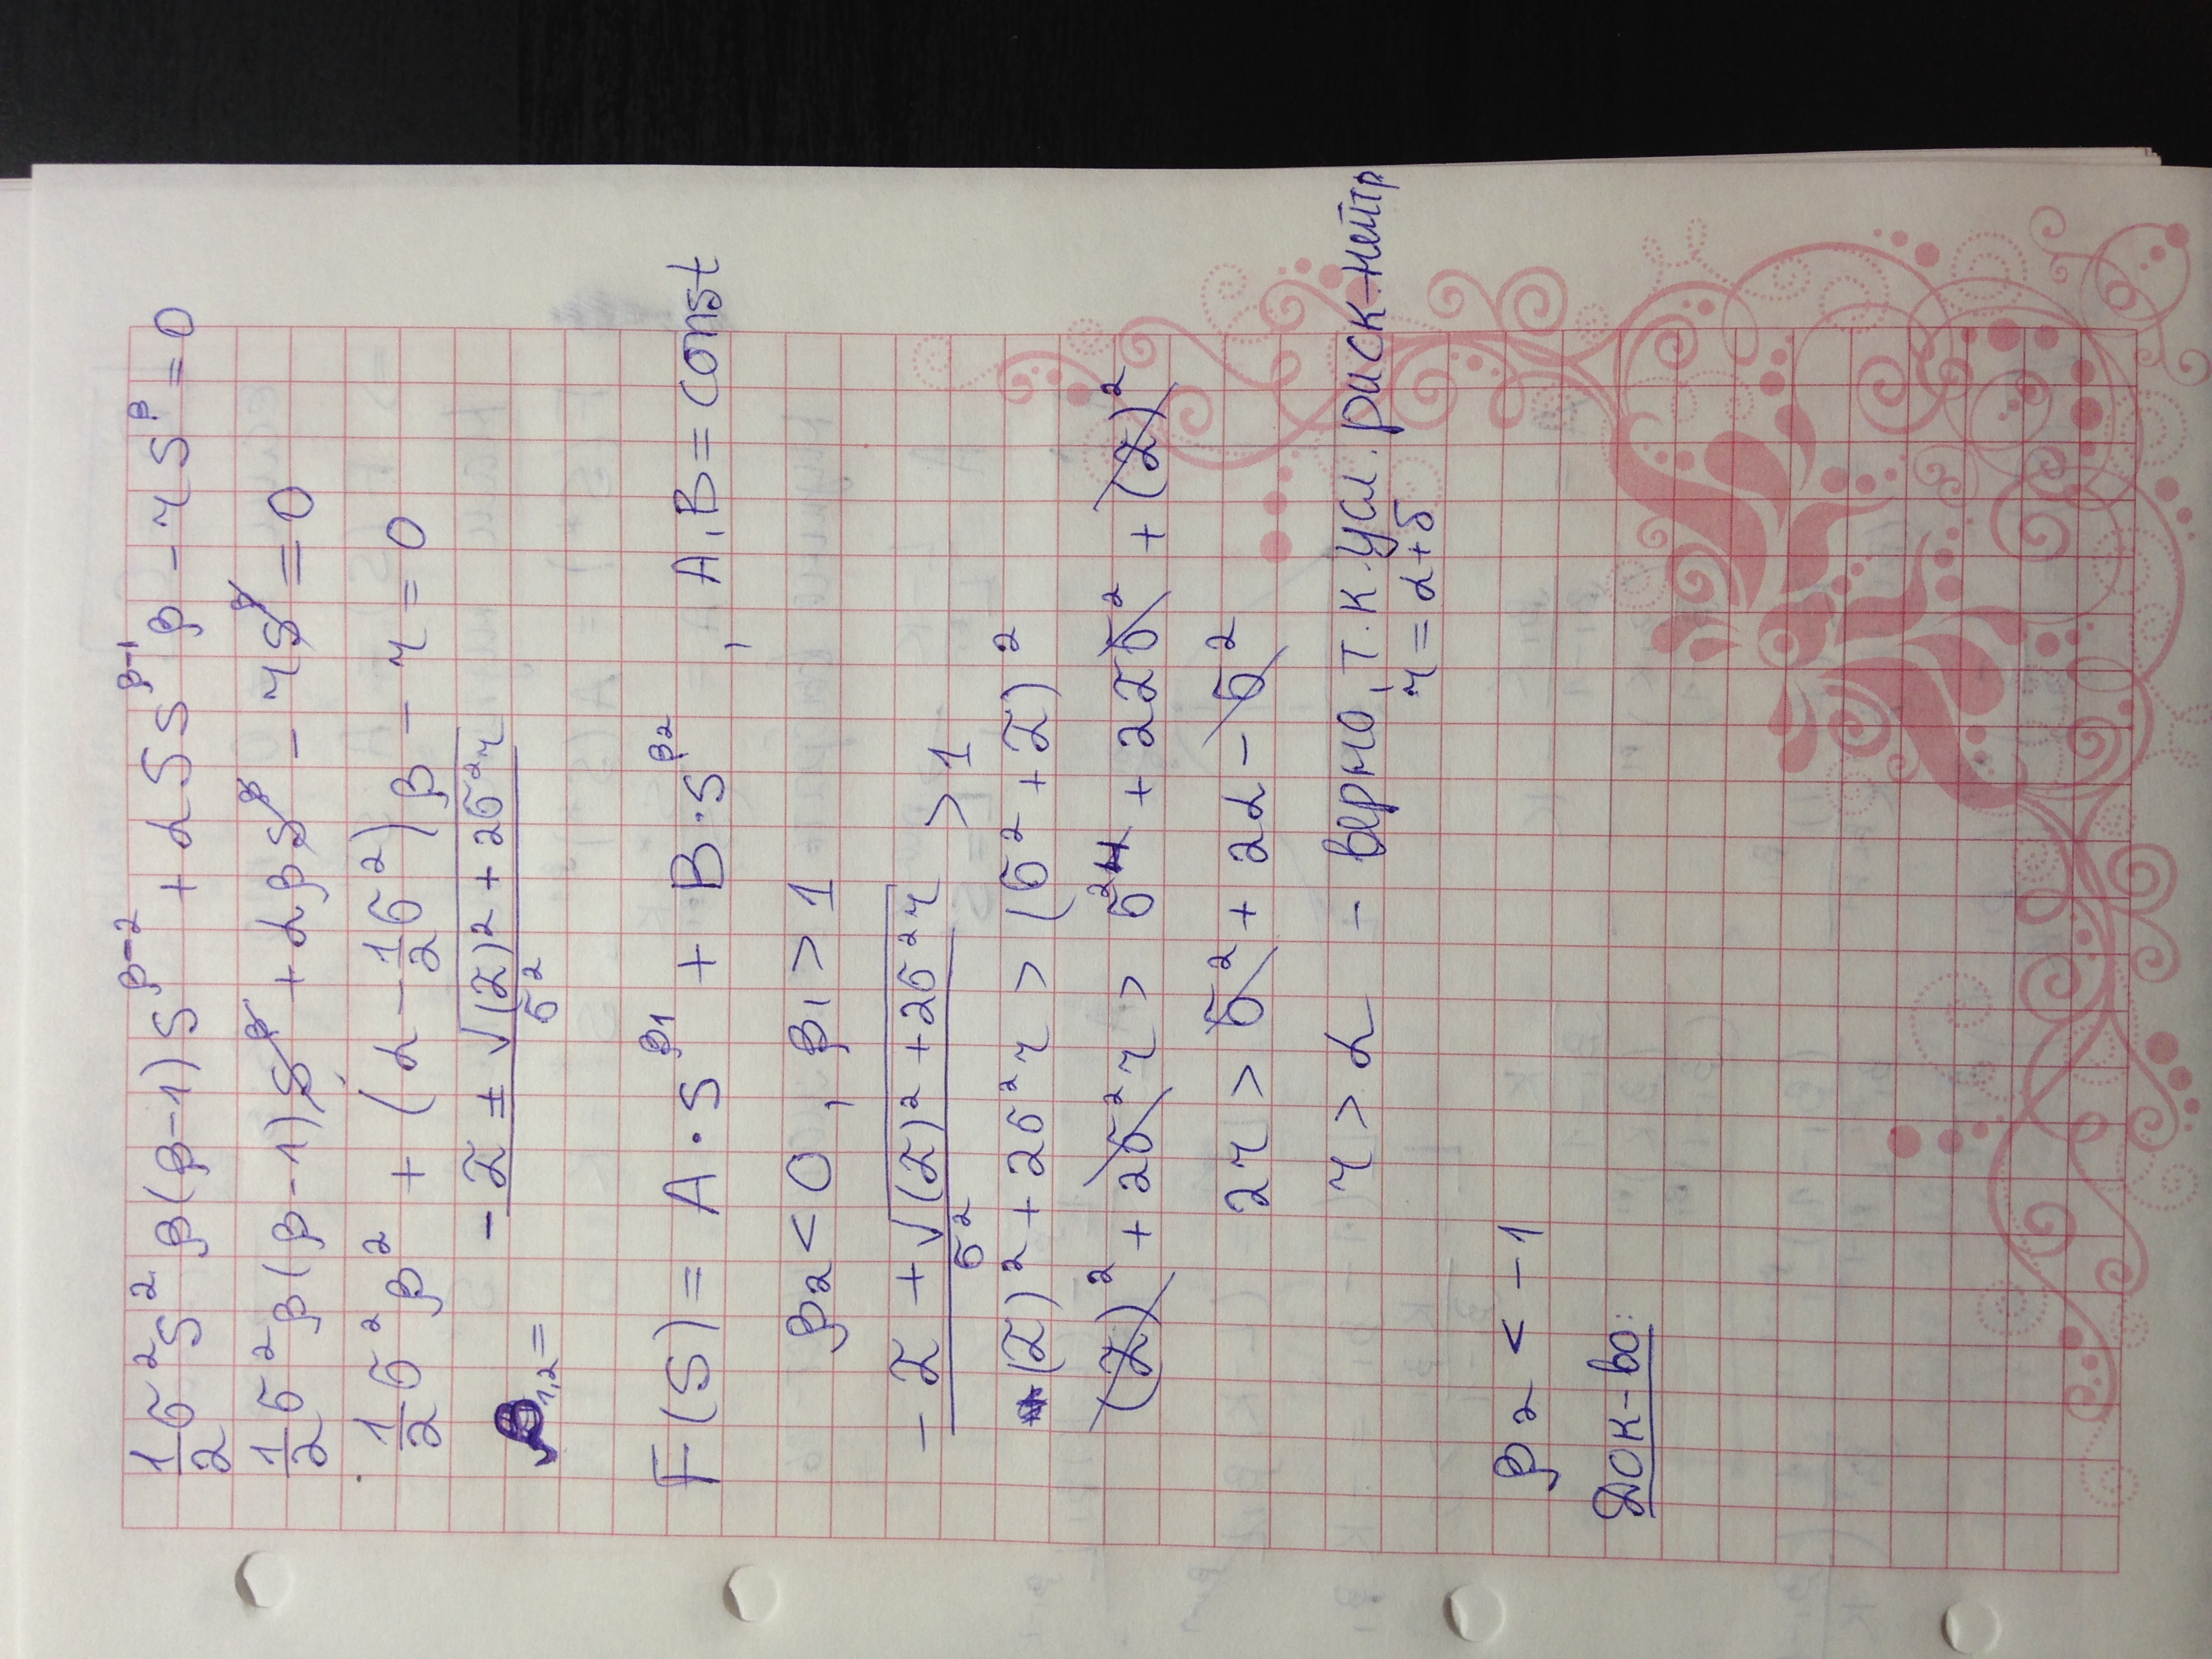 1/2 σ² S² β(β-1) S^(β-2) + α S S^(β-1) β - r S^β = 0
1/2 σ² β(β-1) S^β + α β S^β - r S^β = 0
1/2 σ² β² + (α - 1/2 σ²) β - r = 0
β₁,₂ = (-Z ± √((Z)² + 2σ² r)) / σ²
F(S) = A · S^β1 + B · S^β2 , A, B = const
β₂ < 0 , β₁ > 1
(-Z + √((Z)² + 2σ² r)) / σ² > 1
(Z)² + 2σ² r > (σ² + Z)²
(Z)² + 2σ² r > σ²⁴ + 2Zσ² + (Z)²
2r > σ² + 2α - σ²
r > α - верно, т.к. усл. риск-нейтр
r = α + δ
β₂ < -1
Док-во: